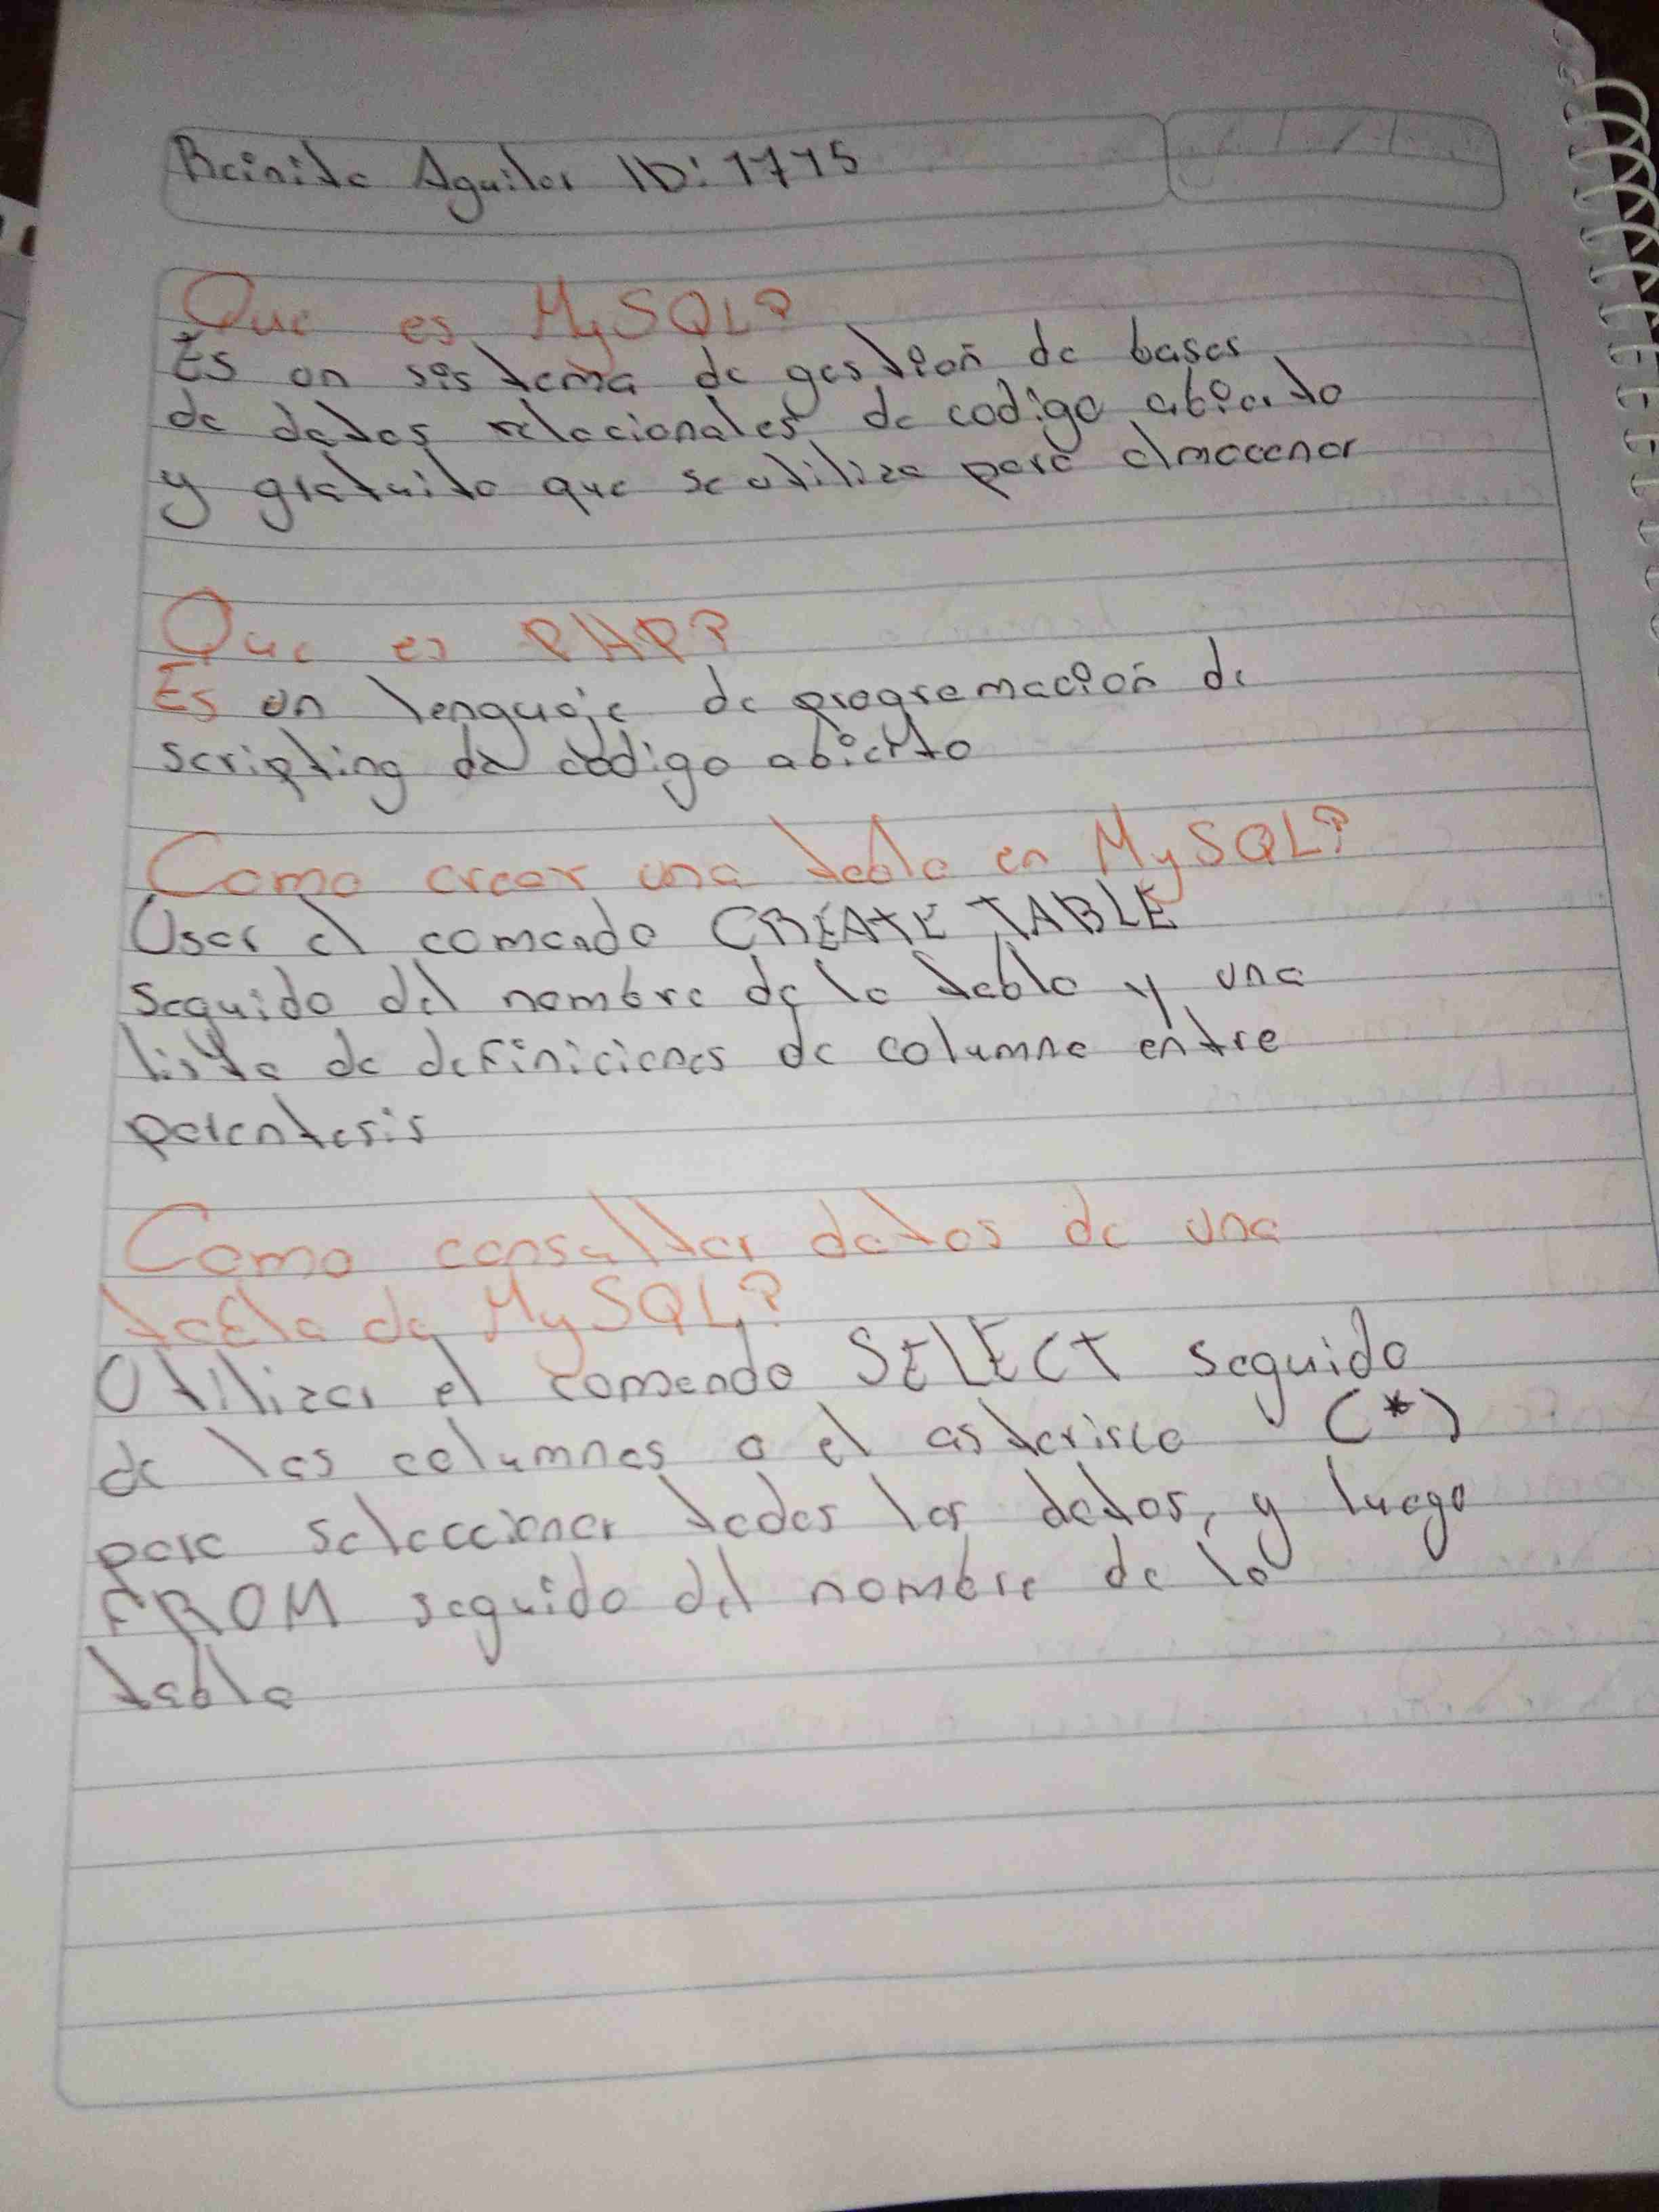 Beinito Aguilar ID: 1775
Que es MySQL?
Es un sistema de gestion de bases
de datos relacionales de codigo abierto
y gratuito que se utiliza para almacenar
Que es PHP?
Es un lenguaje de programacion de
scripting de codigo abierto
Como crear una tabla en MySQL?
Usar el comando CREATE TABLE
seguido del nombre de la tabla y una
lista de definiciones de columna entre
parentesis
Como consultar datos de una
tabla de MySQL?
Utilizar el comando SELECT seguido
de las columnas o el asterisco (*)
para seleccionar todos los datos, y luego
FROM seguido del nombre de la
tabla